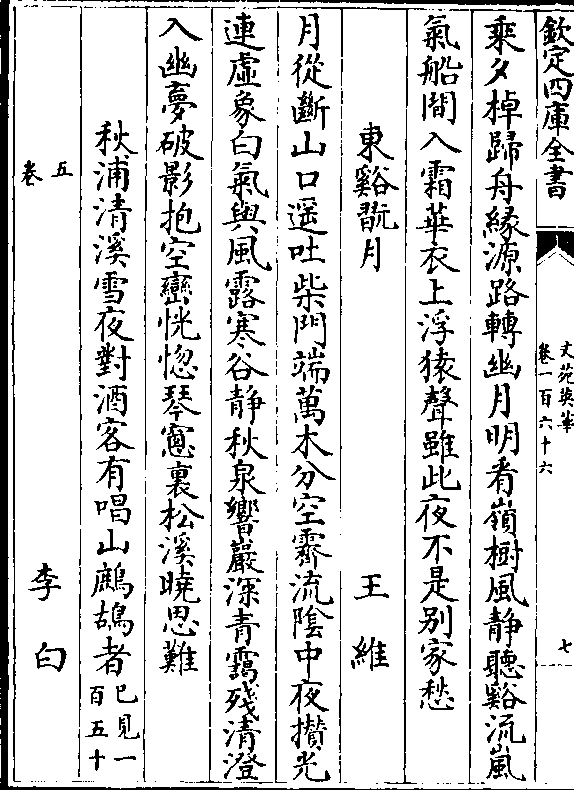 欽定四庫全書
文苑英華
卷一百六十六
七
乘夕棹歸舟緣源路轉幽月明看嶺樹風静聽谿流嵐
氣船間入霜華衣上浮猿聲雖此夜不是别家愁
東谿翫月
王維
月從斷山口遥吐柴門端萬木分空霽流隂中夜攅光
連虚象白氣與風露寒谷静秋泉響巖深青靄殘清澄
入幽夢破影抱空巒恍惚琴窻裏松溪曉思難
秋浦清溪雪夜對酒客有唱山鷓鴣者
已見一
百五十
五
卷
李白